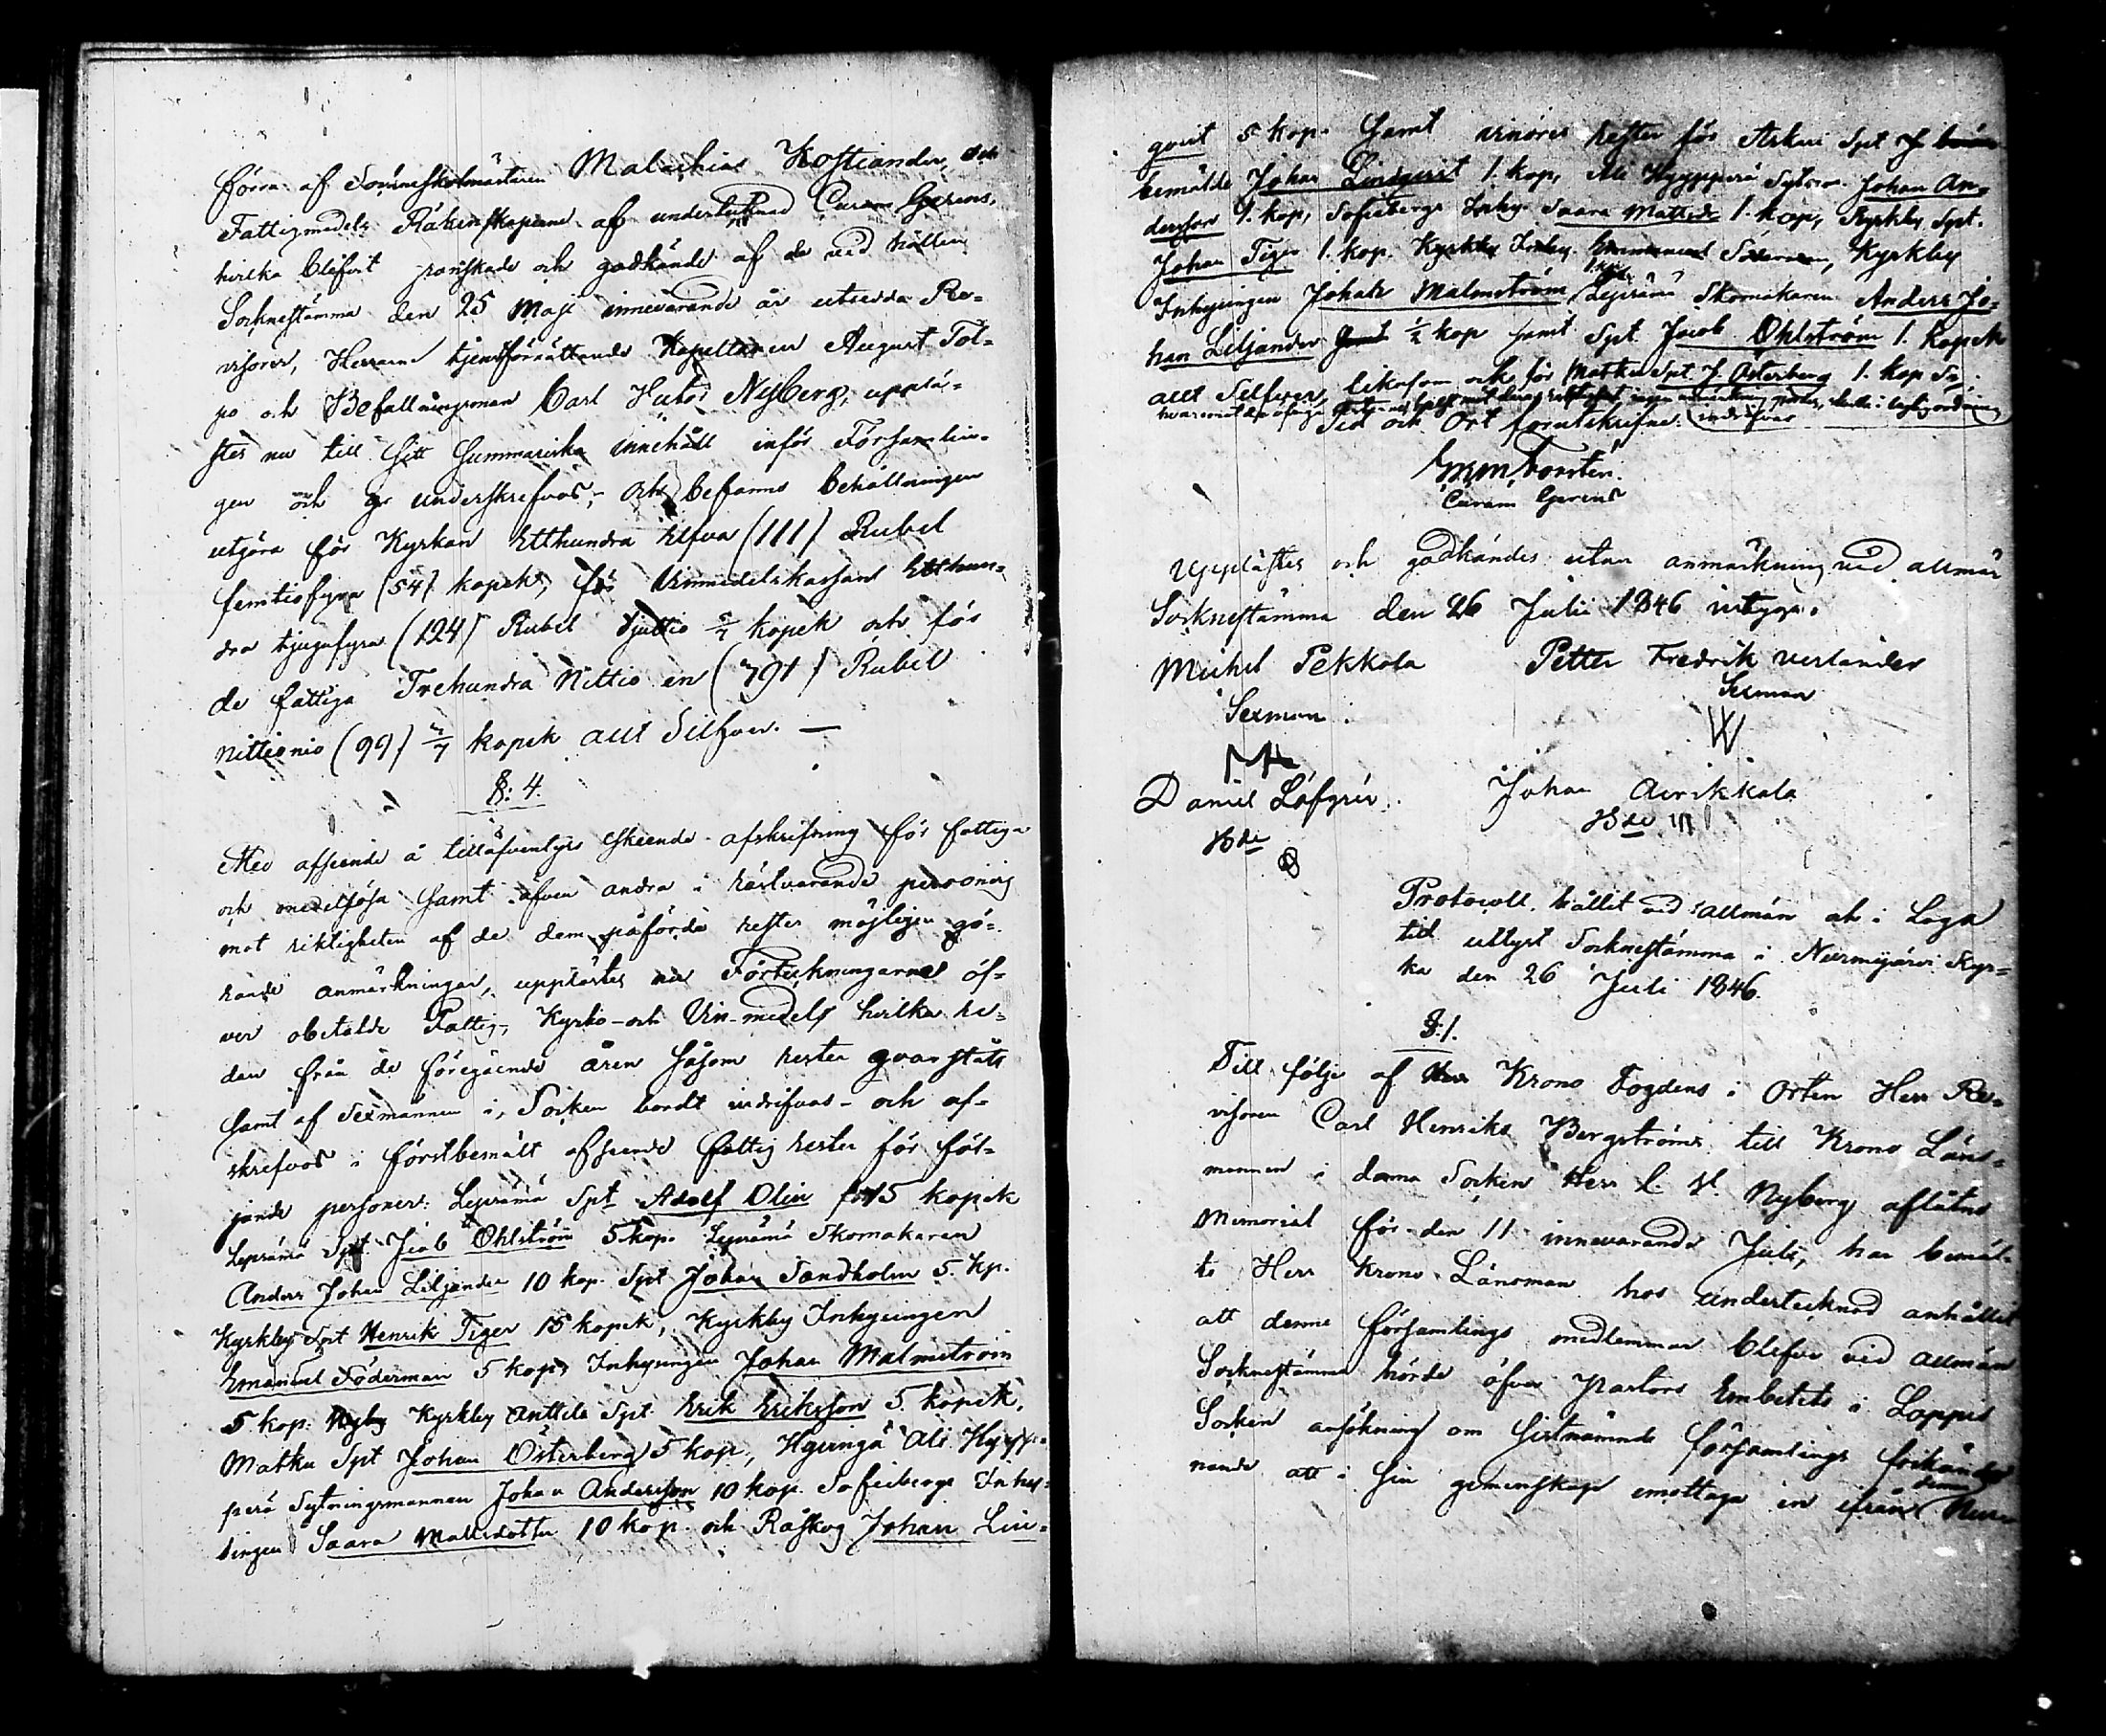 förra af Sockneskolmästaren Malachias Kostiander, och
Fattigmedels Räkenskaperne af undertecknad Curam Gerens,
hvilka blifvit granskade och godkände af de vid hållen
Sockne stämma den 25 Maji innevarande år utsedda Re-
visorer, Herrarne tjenstförrättande Kapellanen August Tol-
po och Befallningsman Carl Hutor Nyberg, upplä-
stes nu till sitt Summariska innehåll inför Församlin-
gen och underskrefvos, och befanns behållningen
utgöra för Kyrkan Etthundra Elfva (111) Rubel
femtiofyra (54) kopek, för Vinmedelskassan Etthun-
dra tjugufyra (124) Rubel Sjuttio 2/7 kopek och för
de fattiga Trehundra Nittio en (391) Rubel
nittionio (99) 3/7 kopek allt Silfver. —
§: 4.
Med afseende å tilläfventyrs skeende afskrifning för fattiga
och medellösa samt äfven andra i härtvarande personers
mot riktigheten af de dem påförda rester möjligen gö-
rande anmärkningar, upplästes nu Förteckningarne öf-
ver obetalde Fattig-, Kyrko- och Vin-medel, hvilka re-
dan från de föregående åren såsom rester qvarstått
samt af Sexmännen i Socken bordt indrifvas - och af-
skrefvos i förstbemält afseende fattig rester för föl-
jande personer: Lepsämä Spt Adolf Olin för 15 kopek
Lepsämä Spt Jacob Öhlström 5 kop. Lepsämä Skomakaren
Anders Johan Liljander 10 kop. Spt Johan Sandholm 5. kp.
Kyrkby Spt Henrik Tiger 15 kopek, Kyrkby Inhysingen
Emanuel Söderman 5 kop, Inhysingen Johan Malmström
5 kop. Kyrkby Anttila Spt. Erik Eriksson 5. kopek,
Matku Spt Johan Österberg 5 kop, Hyvingä Ali Hyyp-
perä Sytningsmannen Johan Andersson 10 kop. Sofiebergs Inhy-
singen Saara Mattsdotter 10 kop. och Raskog Johan Lin-
qvist 5 kop. Samt vinöres rester för Askeri Spt J.
bemälde Johan Lindqvist 1. kop, Ali Hyypperä Sytsm. Johan An-
dersson 1. kop, Sofiebergs Inhy. Saara Mattsdr 1. kop, Kyrkby Spt.
Johan Tiger 1. kop. Kyrkby Inhy. Emmanuel Söderman, Kyrkby
Inhysingen Johan Malmström 1. kop. Lepsämä Skomakaren Anders Jo-
han Liljander 1/2 kop samt Spt. Jacob Öhlström 1. kopek
allt Silfver, likasom och för Matku Spt. J. Österberg 1. kop Sr.
indrifvas
Tid och Ort förutskrifne.
Forstén.
Curam Gerens
Upplästes och godkändes utan anmärkning vid allmän
Sockne stämma den 26 Juli 1846 intyga.
Michel Pekkola Petter Fredrik Verlander
Sexman. Sexman
Daniel Löfgrén. Johan Airikkala
Bde Bde
Protocoll hållit vid allmän och i Laga
tid utlyst Socknestämma i Nurmijärvi Kyr-
ka den 26 Juli 1846.
§:1.
Till följe af Krono Fogdens i Orten Herr Re-
visoren Carl Henriks Bergströms till Krono Läns-
mannen i denna Socken Herr C. H. Nyberg aflåtne
Memorial för den 11 innevarande Juli, har bemäl-
te Herr Krono Länsman hos undertecknad anhållit
att denna församlings medlemmar blefve vid allmän
Sockne stämma hörde öfver Pastors Embetets i Loppis
Socken ansökning om sistnämnde församlings frikännande
nande att i sin gemenskap emottaga en ifrån denna Nurm